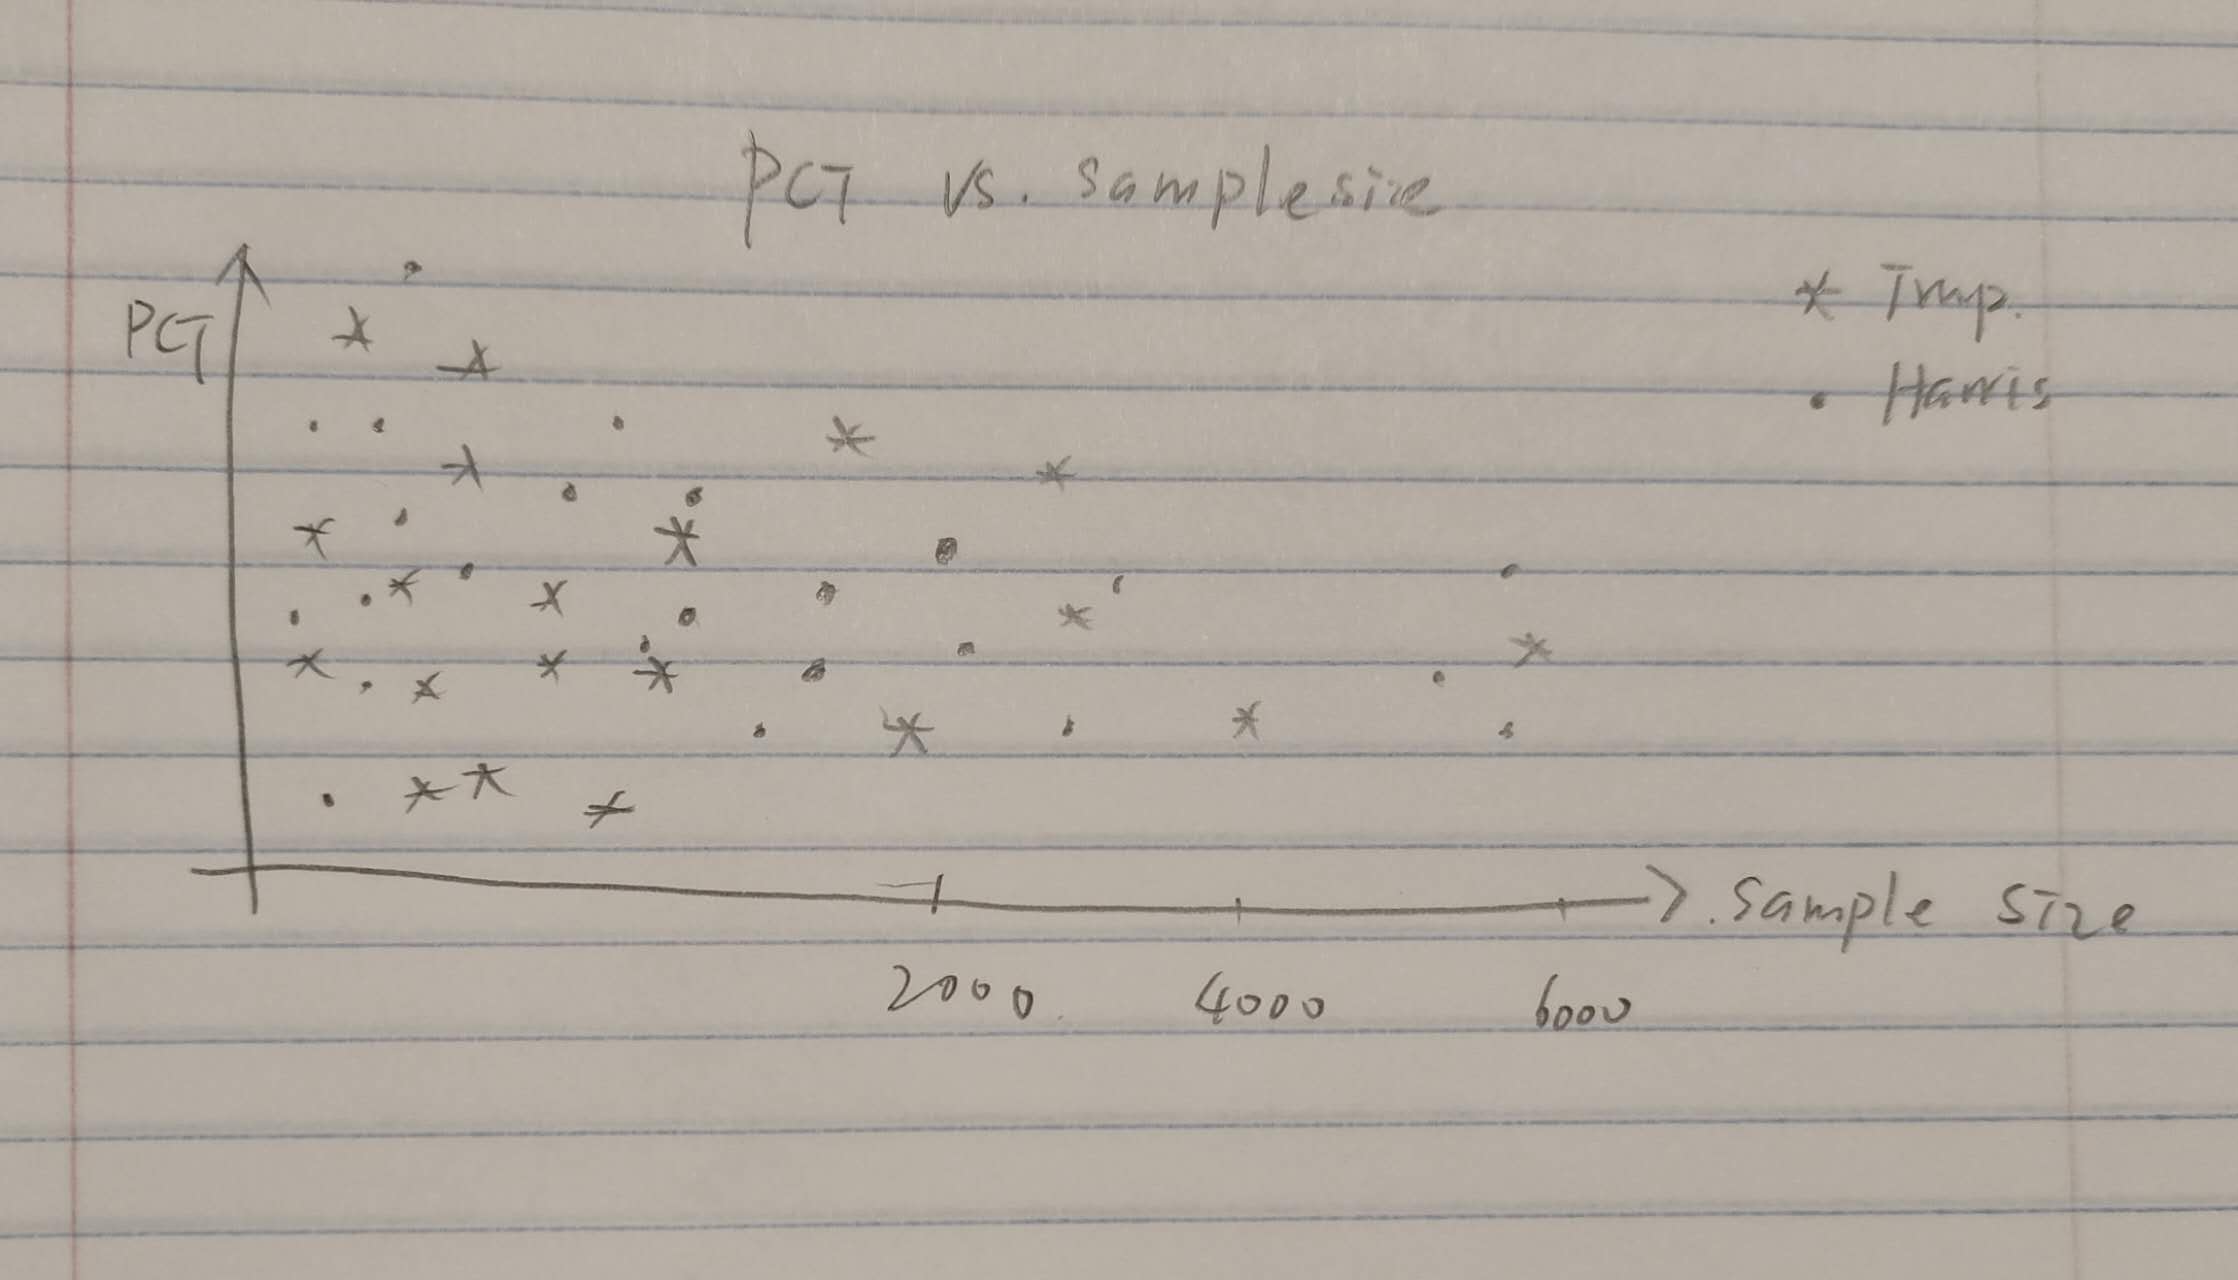 PCT vs. sample size
* Tmp.
PCT
• Harris
sample size
2000 4000 6000